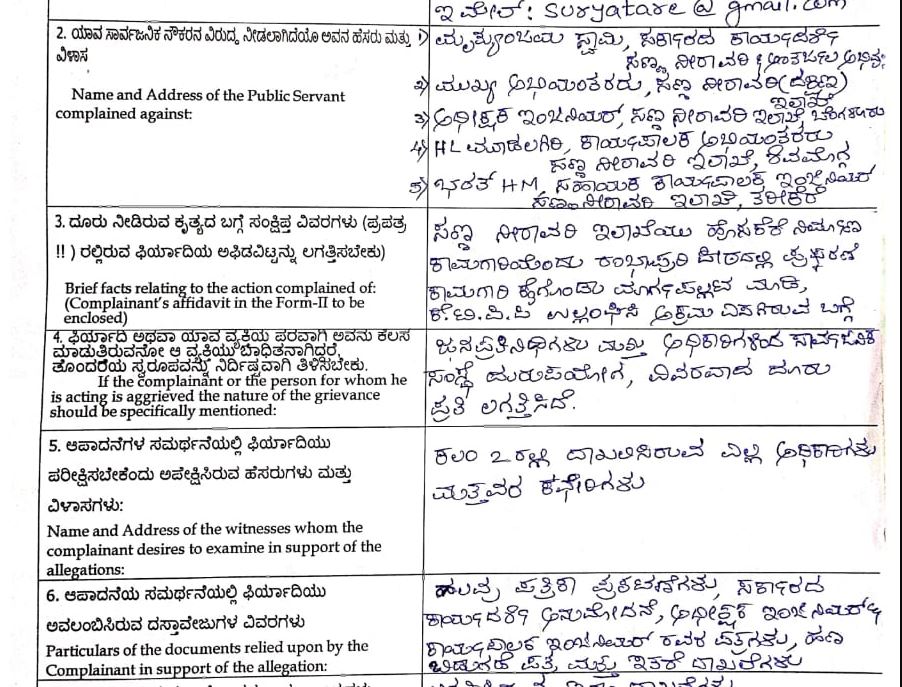 ಇಮೇಲ್: suryatare@gmail.com
2. ಯಾವ ಸಾರ್ವಜನಿಕ ನೌಕರನ ವಿರುದ್ಧ ನೀಡಲಾಗಿದೆಯೋ ಅವನ ಹೆಸರು ಮತ್ತು
ವಿಳಾಸ
Name and Address of the Public Servant
complained against:
1) ಮೃತ್ಯುಂಜಯ ಸ್ವಾಮಿ, ಸರ್ಕಾರದ ಕಾರ್ಯದರ್ಶಿ
ಸಣ್ಣ ನೀರಾವರಿ & ಅಂತರ್ಜಲ ಅಭಿವೃ
2) ಮುಖ್ಯ ಅಭಿಯಂತರರು, ಸಣ್ಣ ನೀರಾವರಿ (ದಕ್ಷಿಣ)
ಇಲಾಖೆ
3) ಅಧೀಕ್ಷಕ ಇಂಜಿನಿಯರ್, ಸಣ್ಣ ನೀರಾವರಿ ಇಲಾಖೆ ಬೆಂಗಳೂರು
4) HL ಮೂಡಲಗಿರಿ, ಕಾರ್ಯಪಾಲಕ ಅಭಿಯಂತರರು
ಸಣ್ಣ ನೀರಾವರಿ ಇಲಾಖೆ, ಶಿವಮೊಗ್ಗ
5) ಭರತ್ HM, ಸಹಾಯಕ ಕಾರ್ಯಪಾಲಕ ಇಂಜಿನಿಯರ್
ಸಣ್ಣ ನೀರಾವರಿ ಇಲಾಖೆ, ತರೀಕೆರೆ
3. ದೂರು ನೀಡಿರುವ ಕೃತ್ಯದ ಬಗ್ಗೆ ಸಂಕ್ಷಿಪ್ತ ವಿವರಗಳು (ಪ್ರಪತ್ರ
!! ) ರಲ್ಲಿರುವ ಫಿರ್ಯಾದಿಯ ಅಫಿಡವಿಟ್ಟನ್ನು ಲಗತ್ತಿಸಬೇಕು)
Brief facts relating to the action complained of:
(Complainant's affidavit in the Form-II to be
enclosed)
ಸಣ್ಣ ನೀರಾವರಿ ಇಲಾಖೆಯು ಹೊಸಕೆರೆ ನಿರ್ಮಾಣ
ಕಾಮಗಾರಿಯೆಂದು ರಂಭಾಪುರಿ ಪೀಠದಲ್ಲಿ ಪುಷ್ಕರಣಿ
ಕಾಮಗಾರಿ ಕೈಗೊಂಡು ಮಾರ್ಗಪಲ್ಲಟ ಮಾಡಿ,
ಕೆ.ಟಿ.ಪಿ.ಪಿ ಉಲ್ಲಂಘಿಸಿ ಅಕ್ರಮ ಎಸಗಿರುವ ಬಗ್ಗೆ
4. ಫಿರ್ಯಾದಿ ಅಥವಾ ಯಾವ ವ್ಯಕ್ತಿಯ ಪರವಾಗಿ ಅವನು ಕೆಲಸ
ಮಾಡುತ್ತಿರುವನೋ ಆ ವ್ಯಕ್ತಿಯು ಬಾಧಿತನಾಗಿದ್ದರೆ,
ತೊಂದರೆಯ ಸ್ವರೂಪವನ್ನು ನಿರ್ದಿಷ್ಟವಾಗಿ ತಿಳಿಸಬೇಕು.
If the complainant or the person for whom he
is acting is aggrieved the nature of the grievance
should be specifically mentioned:
ಜನಪ್ರತಿನಿಧಿಗಳು ಮತ್ತು ಅಧಿಕಾರಿಗಳಿಂದ ಸಾರ್ವಜನಿಕ
ಸಂಸ್ಥೆ ದುರುಪಯೋಗ, ವಿವರವಾದ ದೂರು
ಪ್ರತಿ ಲಗತ್ತಿಸಿದೆ.
5. ಆಪಾದನೆಗಳ ಸಮರ್ಥನೆಯಲ್ಲಿ ಫಿರ್ಯಾದಿಯು
ಪರೀಕ್ಷಿಸಬೇಕೆಂದು ಅಪೇಕ್ಷಿಸಿರುವ ಹೆಸರುಗಳು ಮತ್ತು
ವಿಳಾಸಗಳು:
Name and Address of the witnesses whom the
complainant desires to examine in support of the
allegations:
ಕಲಂ 2 ರಲ್ಲಿ ದಾಖಲಿಸಿರುವ ಎಲ್ಲ ಅಧಿಕಾರಿಗಳು
ಮತ್ತವರ ಕಛೇರಿಗಳು
6. ಆಪಾದನೆಯ ಸಮರ್ಥನೆಯಲ್ಲಿ ಫಿರ್ಯಾದಿಯು
ಅವಲಂಬಿಸಿರುವ ದಸ್ತಾವೇಜುಗಳ ವಿವರಗಳು
Particulars of the documents relied upon by the
Complainant in support of the allegation:
ಹಲವು ಪತ್ರಿಕಾ ಪ್ರಕಟಣೆಗಳು, ಸರ್ಕಾರದ
ಕಾರ್ಯದರ್ಶಿ ಅನುಮೋದನೆ, ಅಧೀಕ್ಷಕ ಇಂಜಿನಿಯರ್
ಕಾರ್ಯಪಾಲಕ ಇಂಜಿನಿಯರ್ ರವರ ಪತ್ರಗಳು, ಹಣ
ಬಿಡುಗಡೆ ಪತ್ರ ಮತ್ತು ಇತರೆ ದಾಖಲೆಗಳು